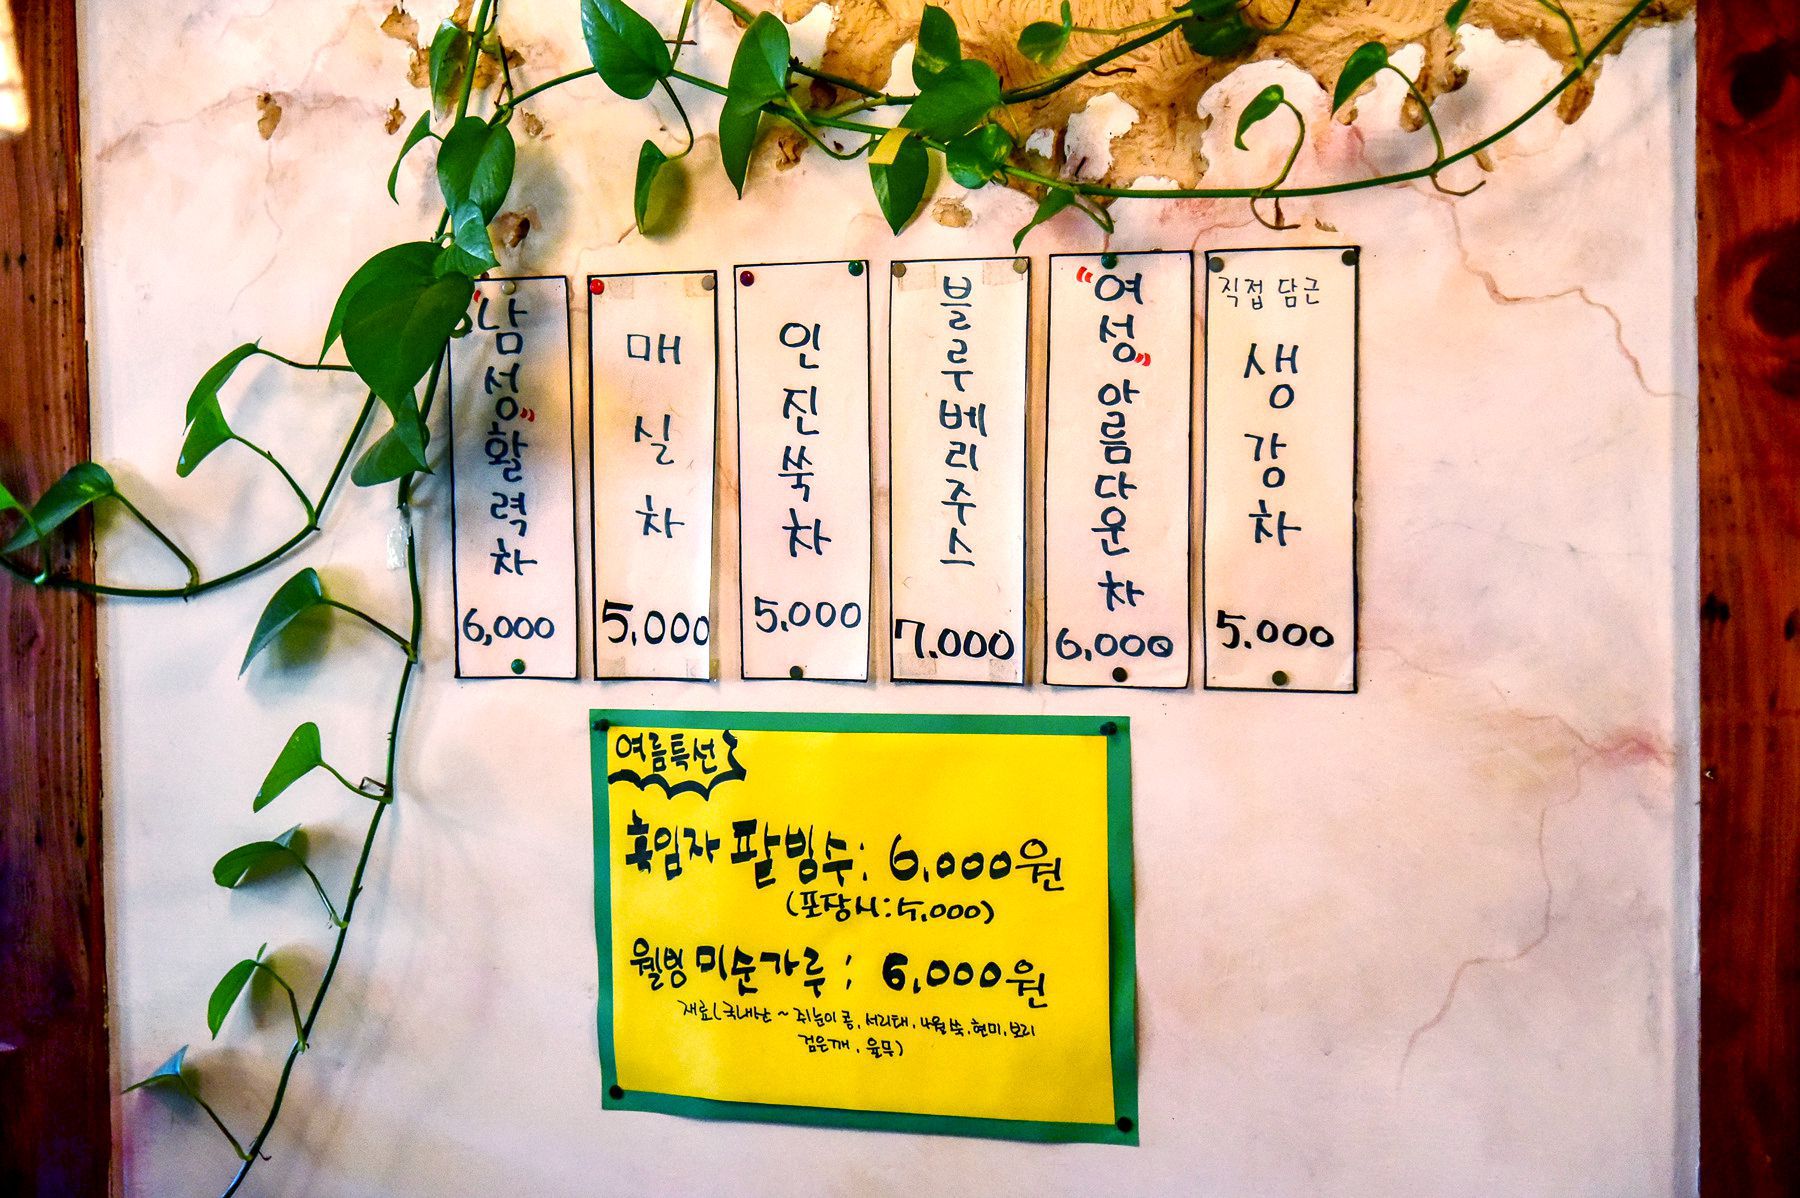 "남성"활력차
6,000
매실차
5,000
인진쑥차
5.000
블루베리주스
7.000
"여성"아름다운차
6,000
직접 담근
생강차
5.000
여름특선
흑임자 팥빙수: 6,000원
(포장시:5,000)
웰빙 미숫가루: 6,000원
재료(국내산~쥐눈이콩, 서리태, 4월쑥, 현미, 보리
검은깨, 율무)